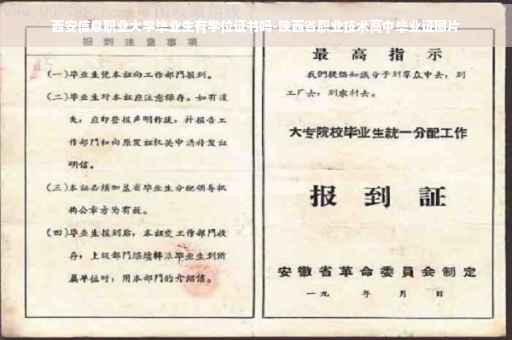 西安信息职业大学毕业生有学位证书吗-陕西省职业技术高中毕业证图片
报到注意事项
(一)毕业生凭本证向工作部门报到。
(二)毕业生对本证应注意保存。如有遗
失,应即登报声明作废,并报告工
作部门和向原发证机关申请补发证
明信。
(三)本证必须加盖省毕业生分配领导机
构公章方为有效。
(四)毕业生报到后,本证交工作部门收
存;上级部门继续转派毕业生到所
属单位时,用本部门的介绍信。
最高指示
我们提倡知识分子到群众中去,到
工厂去,到农村去。
大专院校毕业生统一分配工作
报到证
安徽省革命委员会制定
一九 年 月 日